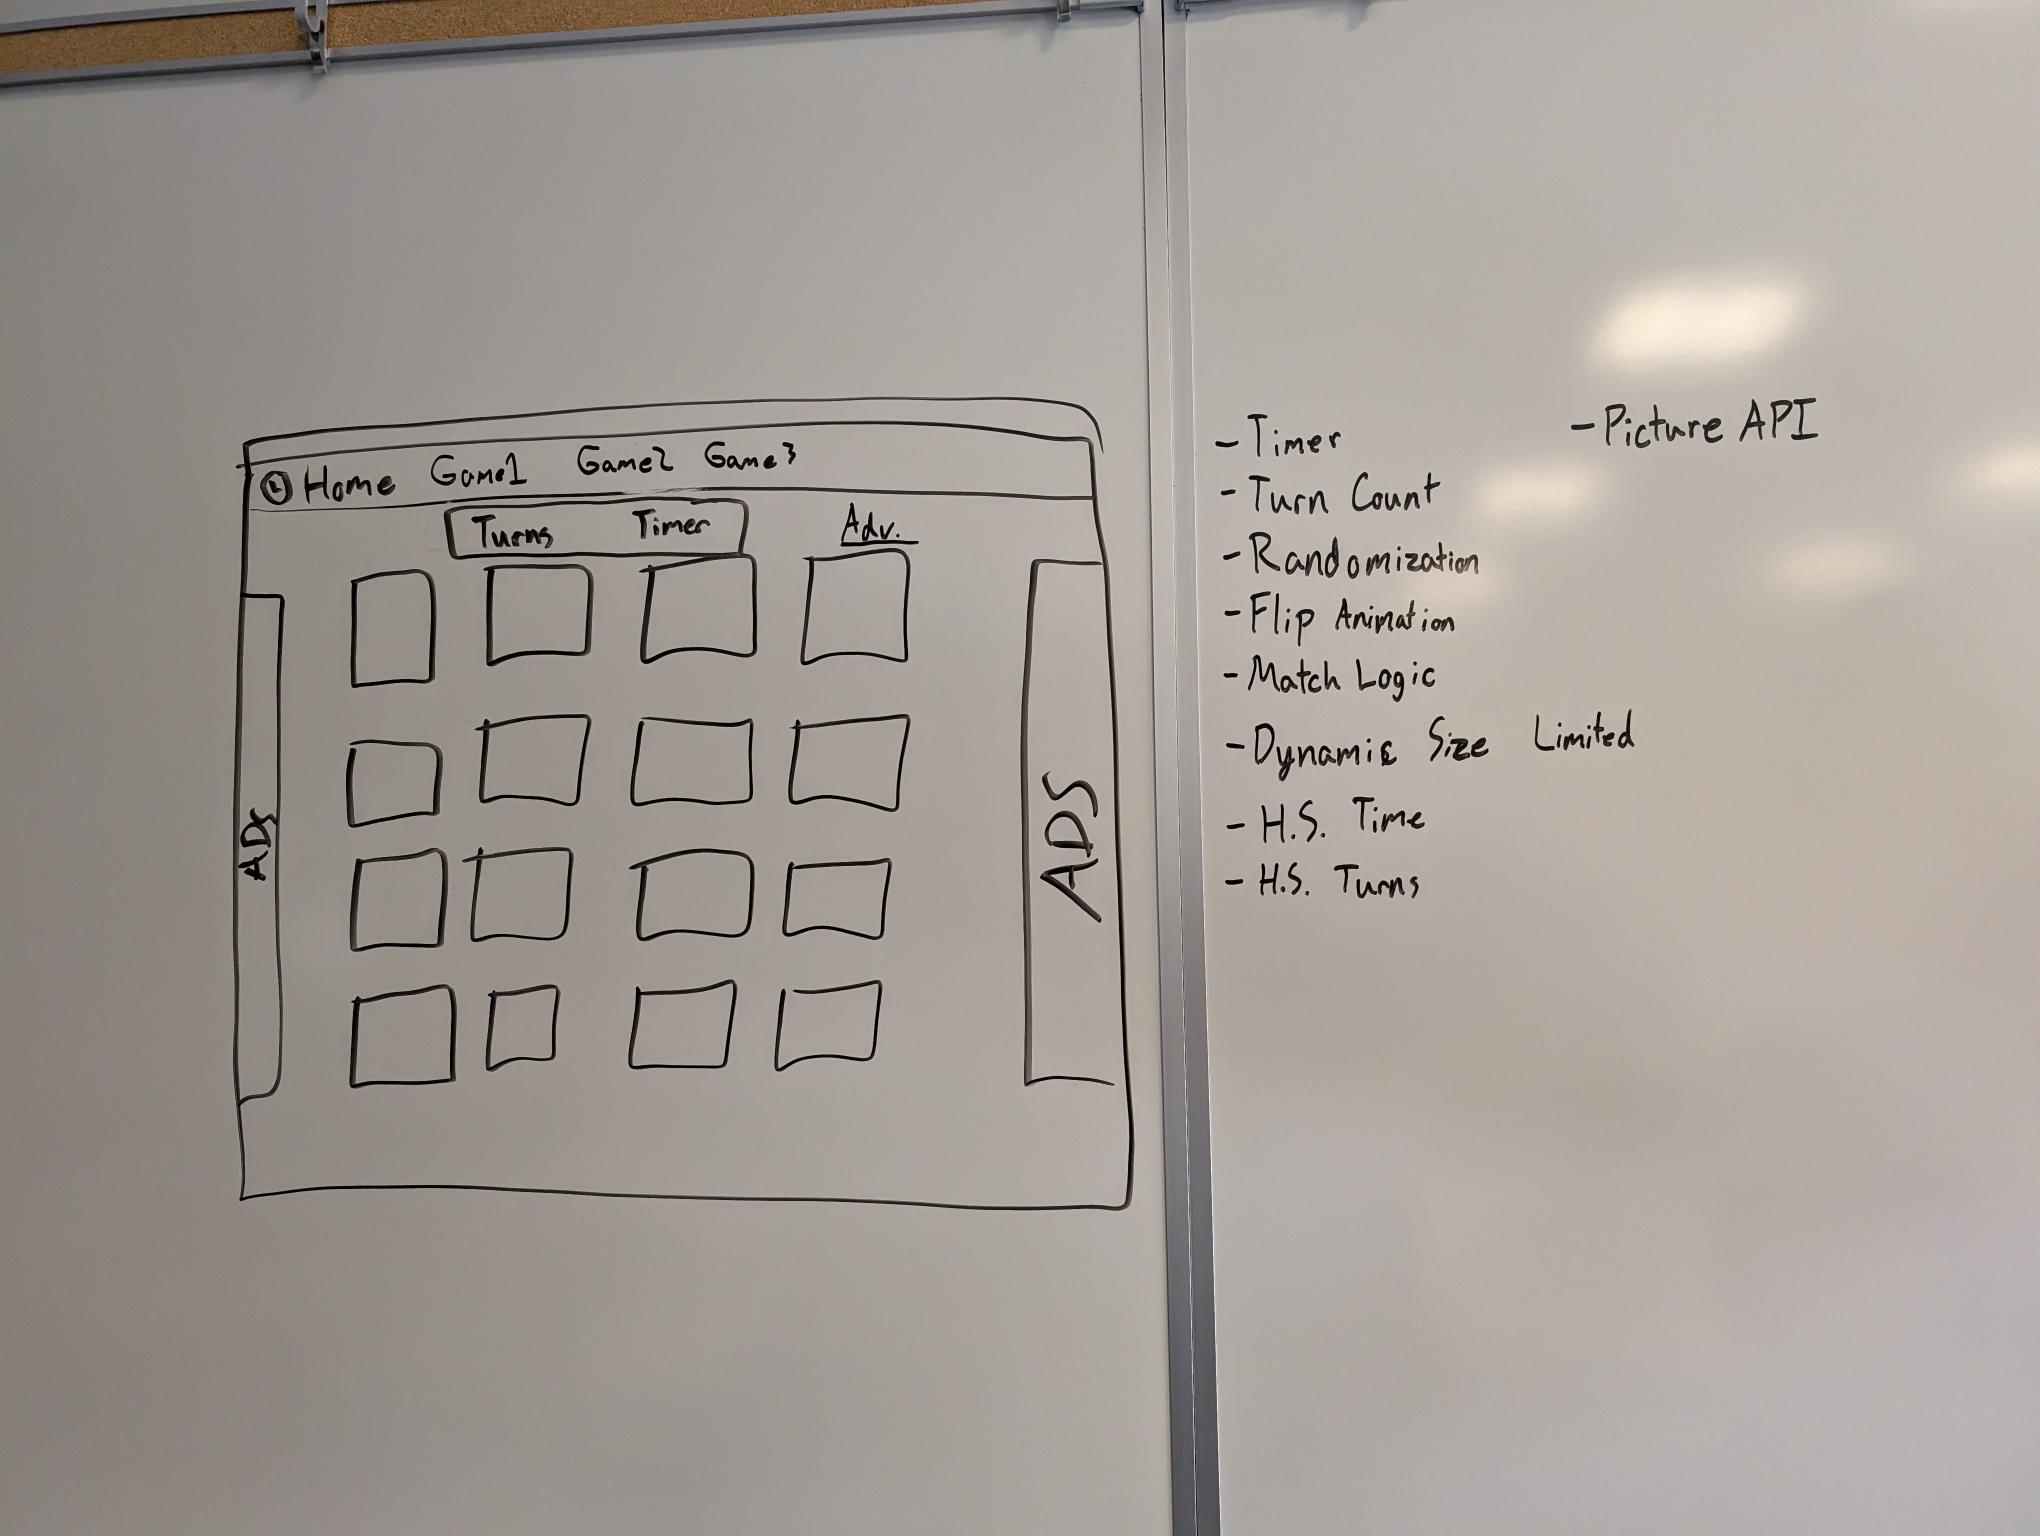 Home Game1 Game2 Game3
Turns Timer
Adv.
ADS
ADS
- Timer
- Turn Count
- Randomization
- Flip Animation
- Match Logic
- Dynamic Size Limited
- H.S. Time
- H.S. Turns
- Picture API